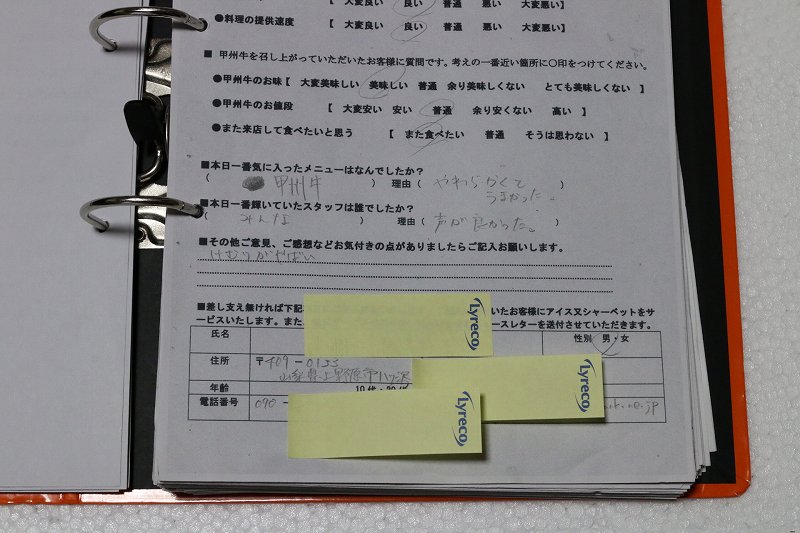 大変良い 良い 普通 悪い 大変悪い 】
●料理の提供速度 【 大変良い 良い 普通 悪い 大変悪い 】
■ 甲州牛を召し上がっていただいたお客様に質問です。考えの一番近い箇所に〇印をつけてください。
●甲州牛のお味【 大変美味しい 美味しい 普通 余り美味しくない とても美味しくない 】
●甲州牛のお値段 【 大変安い 安い 普通 余り安くない 高い 】
●また来店して食べたいと思う 【 また食べたい 普通 そうは思わない 】
■本日一番気に入ったメニューはなんでしたか?
( 甲州牛 ) 理由 ( やわらかくて うまかった。 )
■本日一番輝いていたスタッフは誰でしたか?
( みんな ) 理由 ( 声が良かった。 )
■その他ご意見、ご感想などお気付きの点がありましたらご記入お願いします。
けむりがやばい
■差し支え無ければ下記 いたお客様にアイス又シャーベットをサ
ービスいたします。また、 ースレターを送付させていただきます。
氏名 性別 男・女
住所 〒409-0133
山梨県上野原市八ツ沢
年齢 10代・20代
電話番号 090- .ne.jp
Lyreco
Lyreco
Lyreco